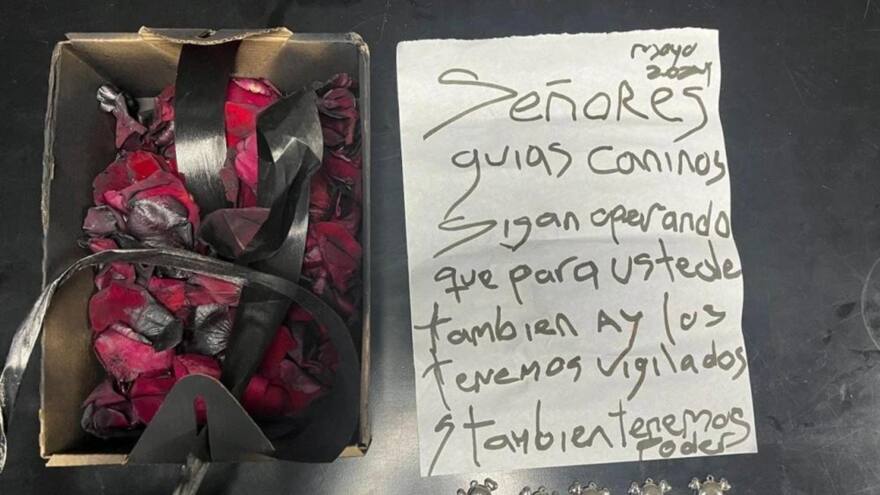 mayo
2024
SEÑORES
guias coninos
Sigan operando
que para ustede
tambien ay los
tenemos vigilados
s tambien tenemos
Poder